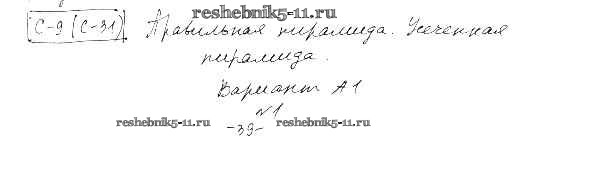 reshebnik5-11.ru
С-9 (С-31) Правильная пирамида. Усеченная
пирамида.
Вариант А1
№1
reshebnik5-11.ru -39- reshebnik5-11.ru